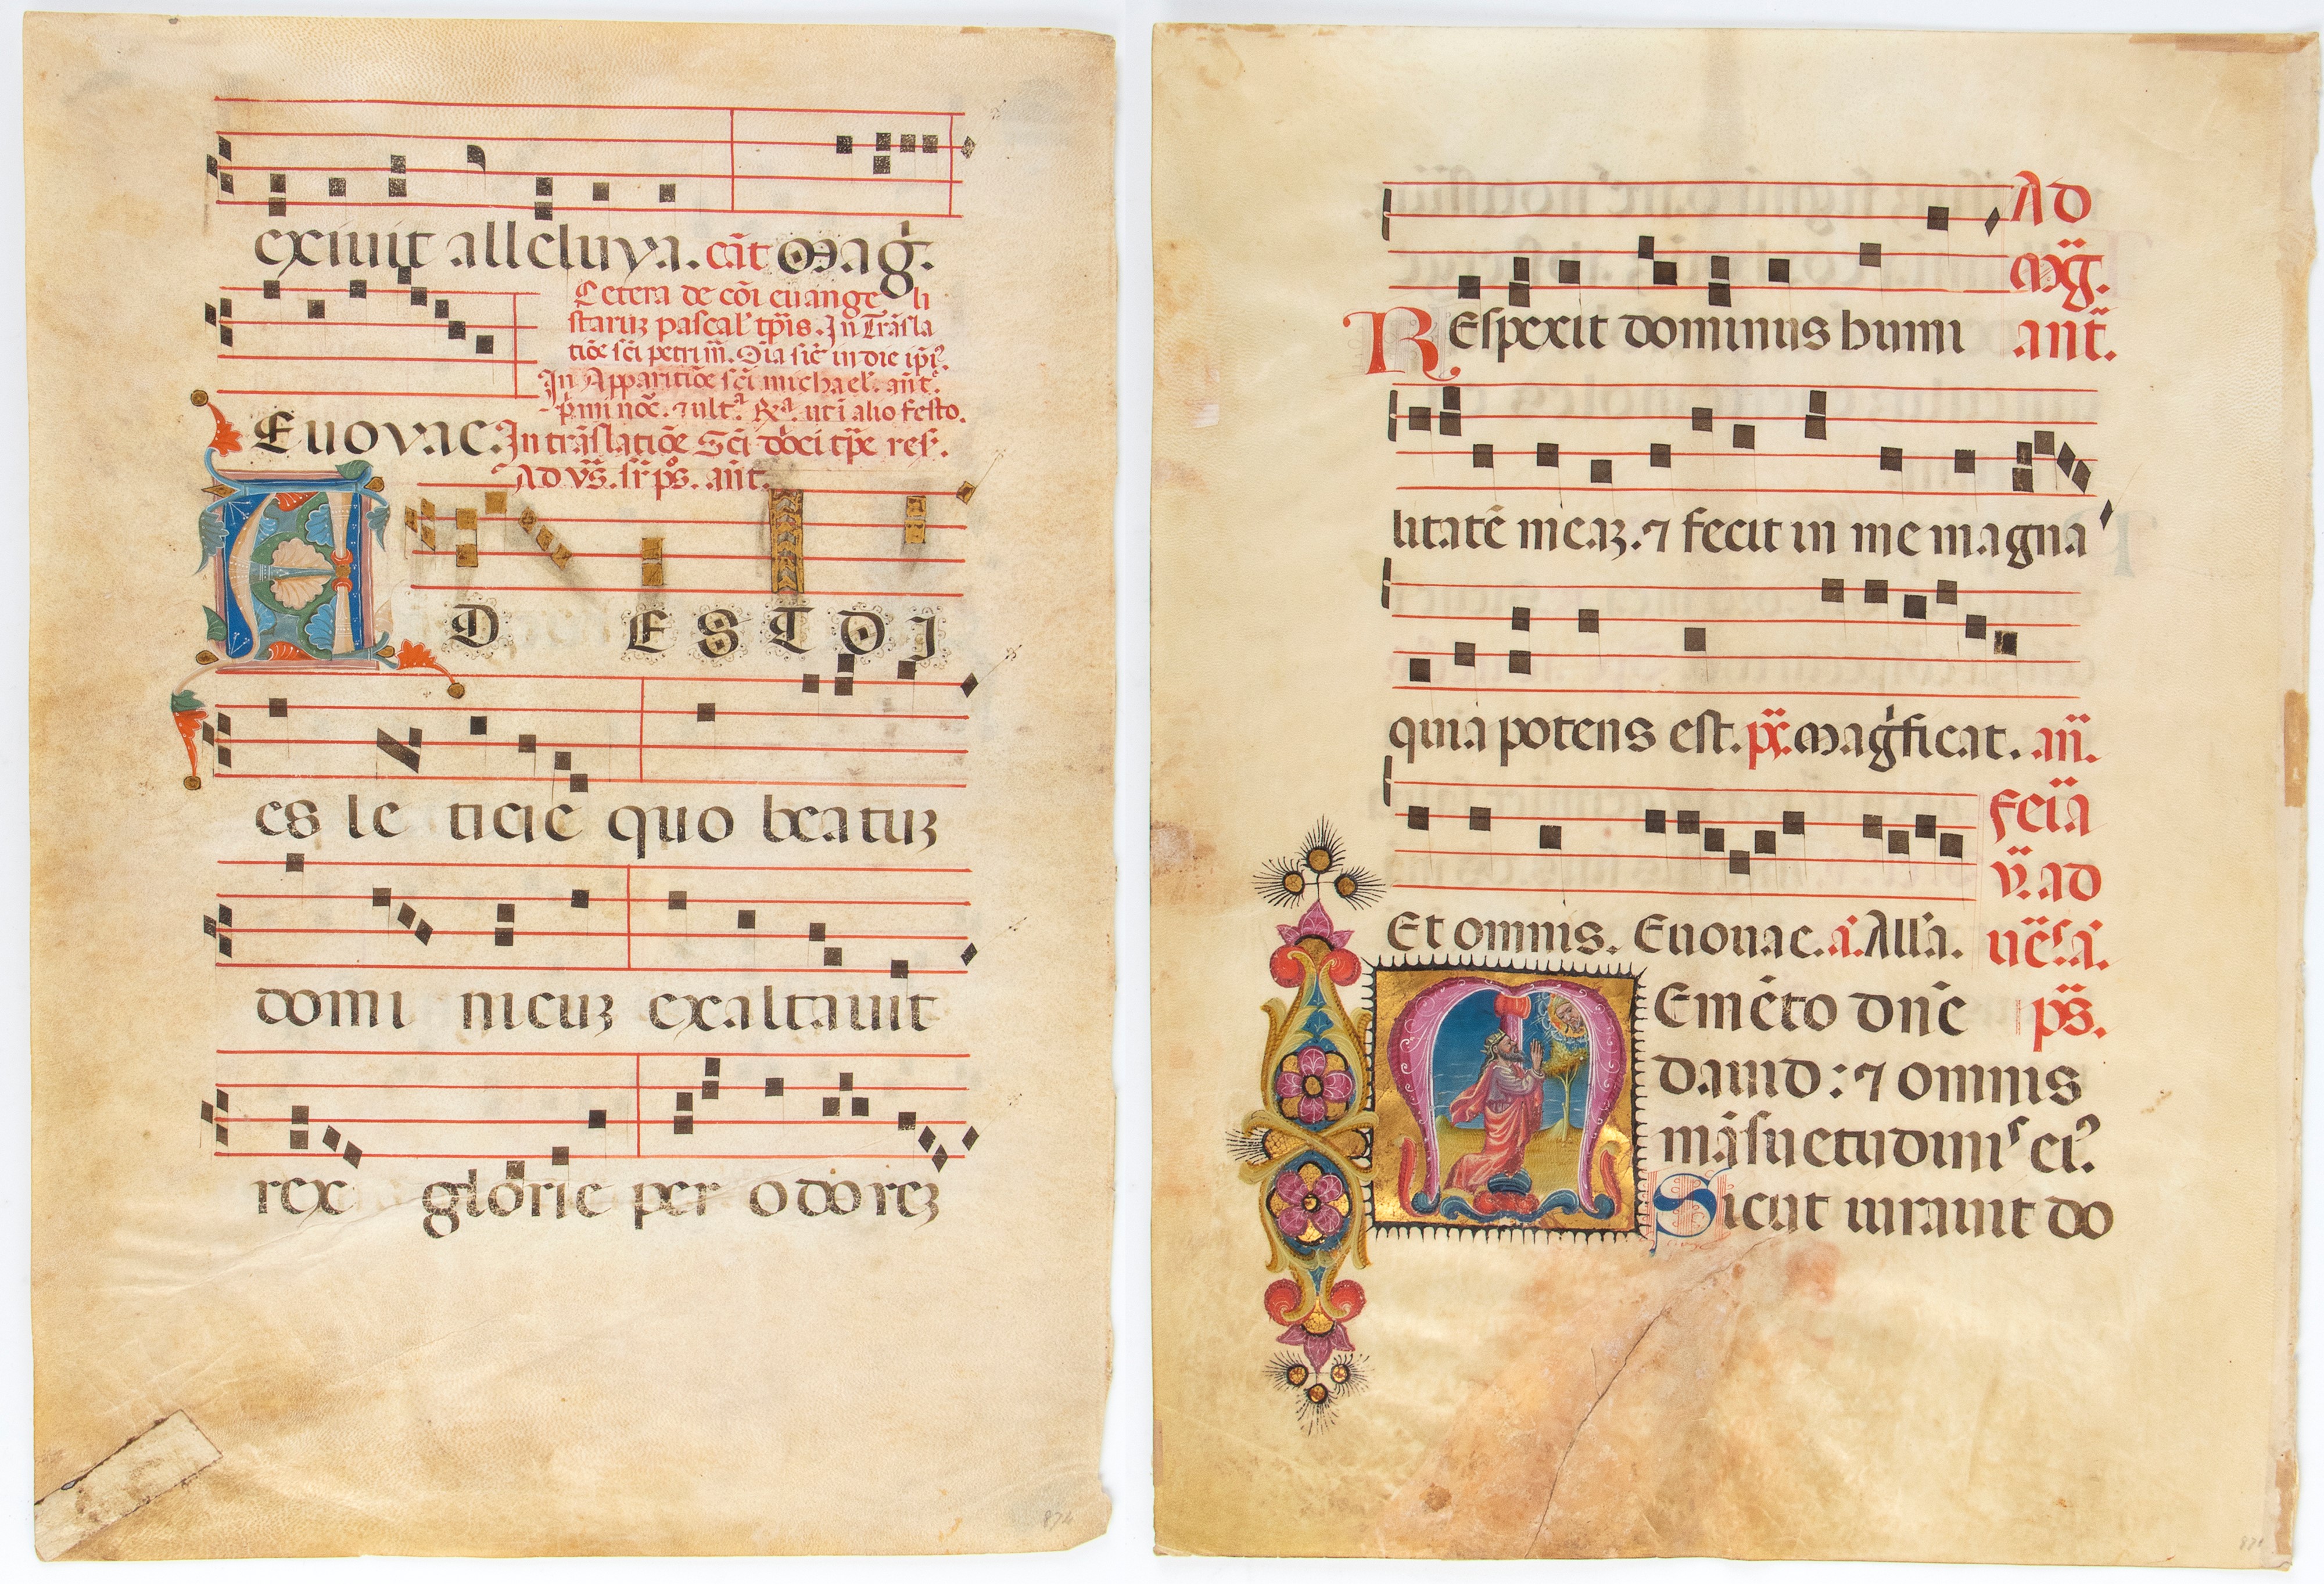 exiuit alleluya. cāt Mag̉.
Cetera de cōi euange li
staruʒ pascal' tp̄is. In Trāsla
tiōe sc̄i petri m̄. Oīa sic̄ in die ip̄iꝰ.
In Apparitiōe sc̄i michael'. an̄t.
p̄mi noc̄. ⁊ ult.ᵃ R̄x.ᵃ ut ī alio festo.
Euovac. In trāslatiōe Sc̄i d̄ōci tp̄e res̄.
Ad vs̄. sr̄ ps̄. an̄t.
AD EST DI
es le ticie quo beatuʒ
domi nicuʒ exaltauit
rex glorie per odoreʒ
Ad
Mḡ.
REspexit dominus humi an̄t.
litatē meaʒ. ⁊ fecit in me magna
quia potens est. px̄. Mag̉ficat. an̄.
fer̄ia
v̄. ad
Et omnis. Euouac. a̍. All'a. ue̅sᵃ.
MEmēto dn̄e ps̄.
dauid: ⁊ omnis
māsuetudinis eiꝰ.
Sicut iurauit do
874